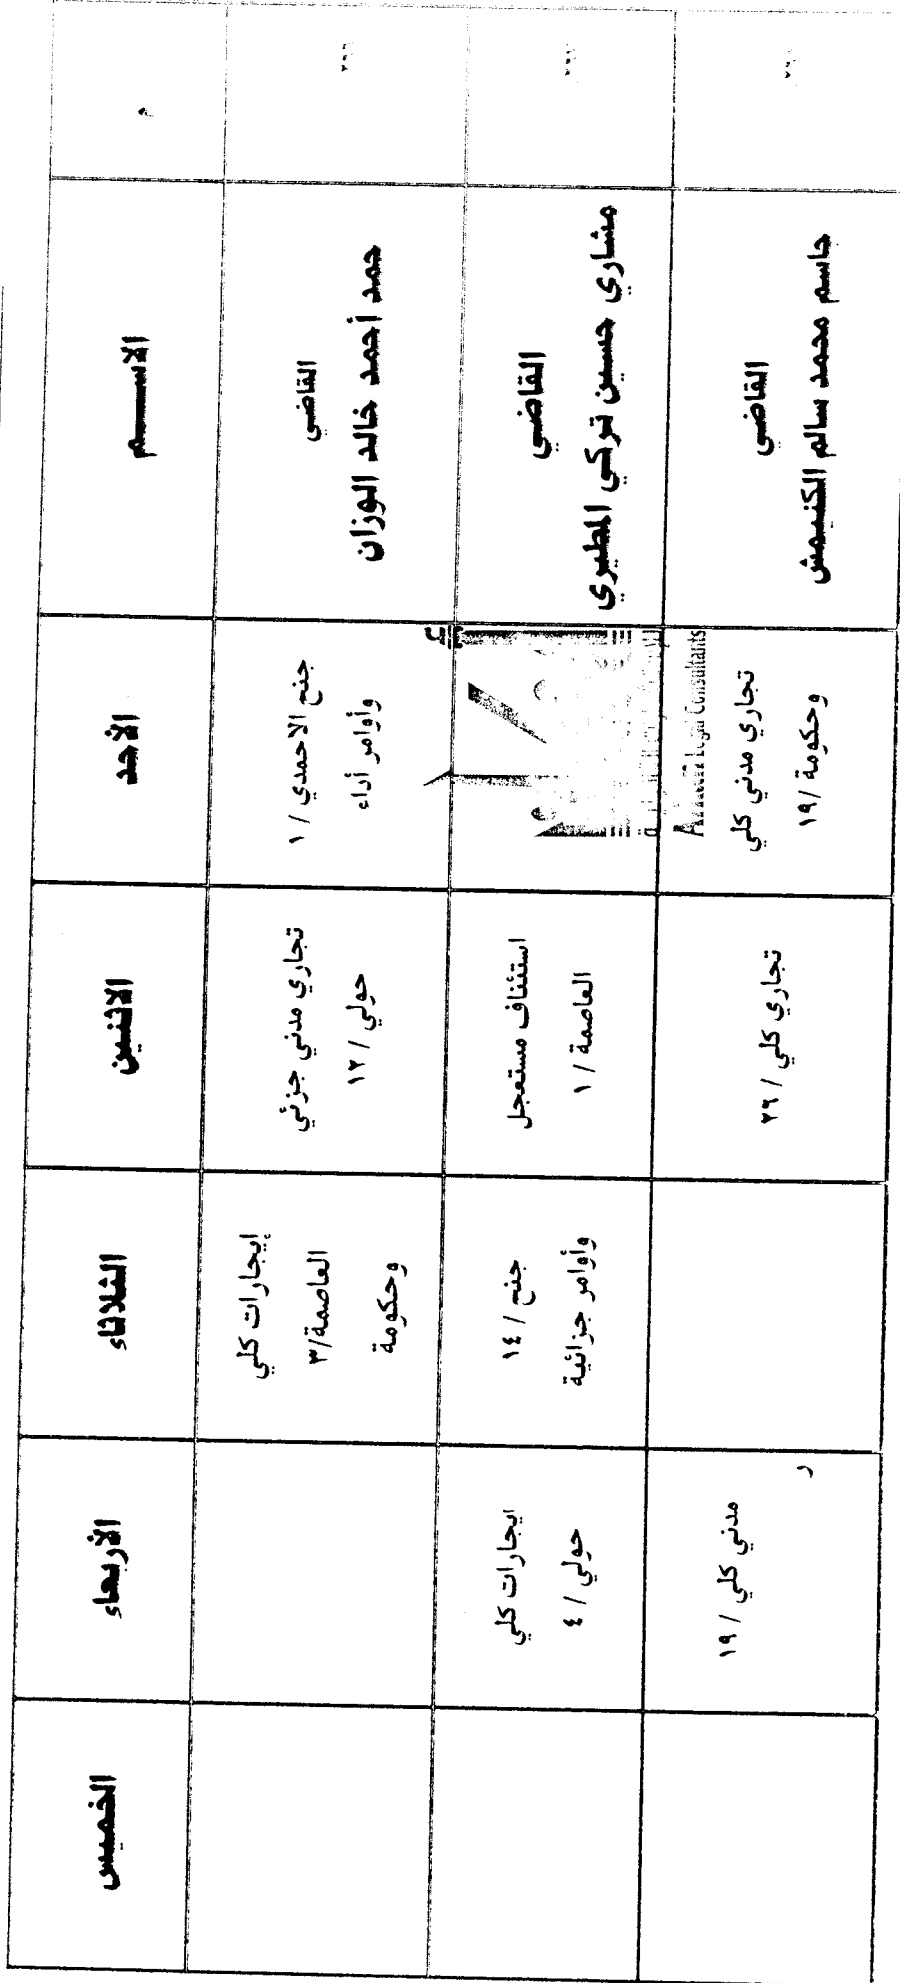 م
الاســـم
الأحد
الاثنين
الثلاثاء
الأربعاء
الخميس
القاضي
حمد أحمد خالد الوزان
جنح الاحمدي / ١
وأوامر أداء
تجاري مدني جزئي
حولي / ١٢
إيجارات كلي
العاصمة/٣
وحكومة
القاضي
مشاري حسين تركي المطيري
استئناف مستعجل
العاصمة / ١
جنح / ١٤
وأوامر جزائية
ايجارات كلي
حولي / ٤
القاضي
جاسم محمد سالم الكنيمش
Legal Consultants
تجاري مدني كلي
وحكومة / ١٩
تجاري كلي / ٢٦
مدني كلي / ١٩